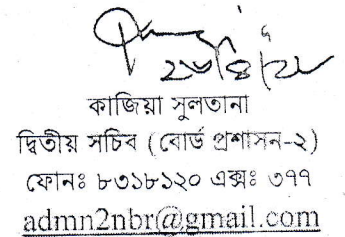 কাজিয়া সুলতানা
দ্বিতীয় সচিব (বোর্ড প্রশাসন-২)
ফোনঃ ৮৩১৮১২০ এক্সঃ ৩৭৭
admn2nbr@gmail.com